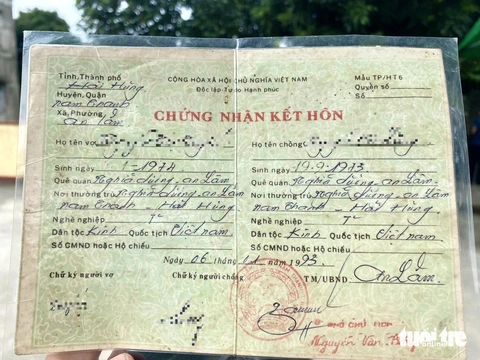 Tỉnh, Thành phố
Hải Hưng
Huyện, Quận
nam Thanh
Xã, Phường,
An Lâm
CỘNG HÒA XÃ HỘI CHỦ NGHĨA VIỆT NAM
Độc lập - Tự do Hạnh phúc
Mẫu TP/HT6
Quyển số
Số
CHỨNG NHẬN KẾT HÔN
Họ tên vợ
Họ tên chồng
Sinh ngày 1-1974
Sinh ngày 19.9.1973
Quê quán nghĩa dũng. an Lâm
Quê quán Nghĩa dũng. an Lâm
Nơi thường trú nghĩa dũng. an Lâm
Nơi thường trú nghĩa dũng. an Lâm
nam Thanh Hải Hưng
nam Thanh - Hải Hưng
Nghề nghiệp
Nghề nghiệp
Dân tộc Kinh Quốc tịch Việt nam
Dân tộc Kinh Quốc tịch Việt nam
Số CMND hoặc Hộ chiếu
Số CMND hoặc Hộ chiếu
Ngày 06 tháng 11 năm 1993.
Chữ ký người vợ
Chữ ký người chồng
TM/UBND An Lâm
Nguyễn Văn
tuổi trẻ
online